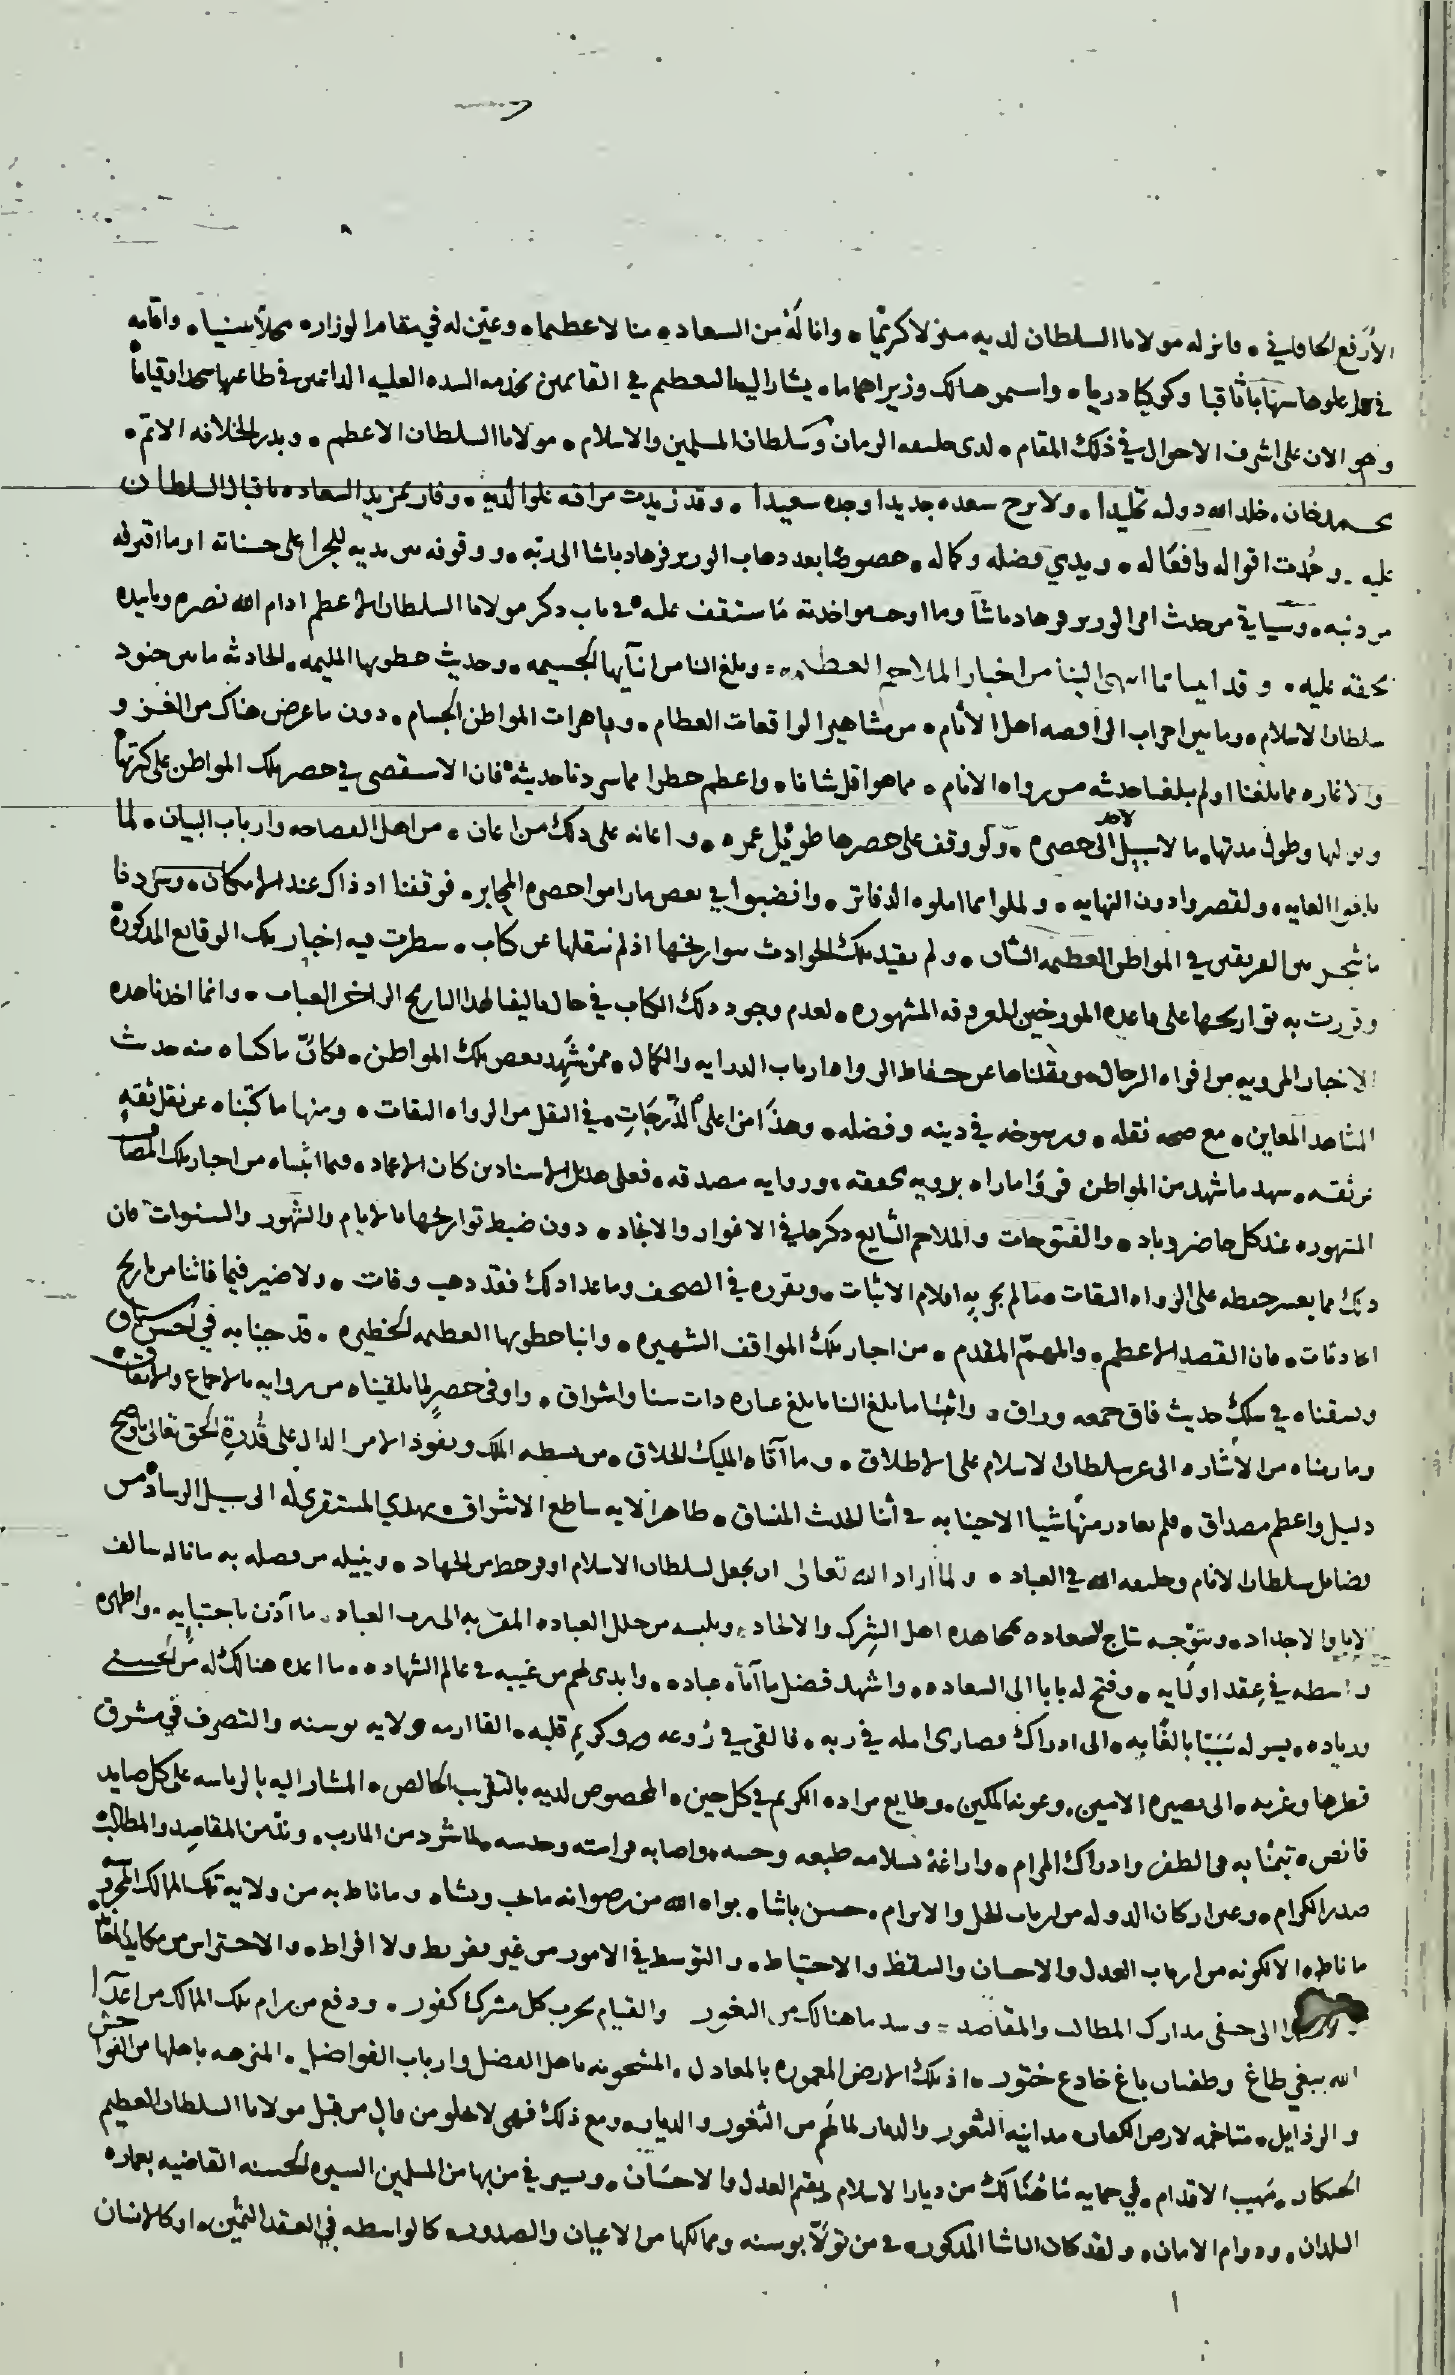 الأرفع الحاقاني • فانزله مولانا السلطان لديه منزلا كريمًا • وانا لَهُ من السعاده منالا عظيما • وعيّن له في مقام الوزاره محلًا سنيا • واقامه
في علوها شهابا ثاقبا وكوكبا دريا • واستمر هنالك وزيرا هماما • يشار اليه بالتعظيم في القائمين بخدمه السده العليه الدائمين في طاعتها سجدا وقيامًا
وهو الان على اشرف الاحوال في ذلك المقام • لدى خليفه الزمان وسلطان المسلمين والاسلام • مولانا السلطان الاعظم • وبدر الخلافه الاتم •
محمد خان • خلد الله دولته تخليدا • ولا برح سعده جديدا وجده سعيدا • وقد زيدت مراقه علوا لديه • وفاز بمزيد السعاده باقبال السلطان
عليه • وحُمدت اقواله وافعاله • ويدي فضله وكماله • خصوصًا بعد ذهاب الوزير فرهاد باشا الى ربه • ووقوفه بين يديه للجزا على حسناته او ما اقترفه
من ذنبه • وسيأتي من حدث امر الوزير فرهاد باشا وما اوجب مواخذته ما ستقف عليه في باب ذكر مولانا السلطان الاعظم ادام الله نصره وتاييده
بحقه عليه • وقد اتينا بما انتهى الينا من اخبار الملاحم العظيمه • وبلغ الينا من انبآئها الجسيمه • وحديث خطوبها المليمه • الحادثه ما بين جنود
سلطان الاسلام • وما بين احزاب الرافضه اهل الآثام • من مشاهير الواقعات العظام • وباهرات المواطن الجسام • دون ما عرض هناك من الغزو
والاغاره مما بلغنا او لم يبلغنا حدثه من رواه الانام • مما هو اقل شانا • واعظم خطرا مما سردنا حديثه فان الاستقصى في حصر تلك المواطن على كثرتها
وتواليها وطول مدتها • ما لا سبيل لاحد الى حصره • ولو وقف على حصرها طويل عمره • واعانه على ذلك من اعان • من اهل الفصاحه وارباب البيان • لما
بلغوا الغايه • ولقصروا دون النهايه • ولملوا مما املوه الدفاتر • وانضبوا في بعض ما راموا حصره المحابر • فوقفنا اذ ذاك عند الامكان • وسردنا
ما شجر بين الفريقين في المواطن العظيمه الشان • ولم نقيد تلك الحوادث بتواريخها اذ لم ننقلها عن كتاب • سطرت فيه اخبار تلك الوقائع المذكورة
وقررت به تواريخها على قاعده المورخين المعروفه المشهوره • لعدم وجود ذلك الكتاب في حال تاليفنا لهذا التاريخ الزاخر العباب • وانما اخذنا هذه
الاخبار المرويه من افواه الرجال • ونقلناها عن حفاظ الرواه ارباب الدرايه والكمال • ممن شهد بعض تلك المواطن • فكانّ ما كتبناه منه حدث
المشاهد المعاين • مع صحه نقله • ورسوخه في دينه وفضله • وهذا من اعلى الدّرجاتِ في النقل من الرواه الثقات • ومنها ما كتبناه عن نقل ثقةٍ
عن ثقه • شهد ما شهد من المواطن فروى ما راه برويه محققه • وروايه مصدقه • فعلى هذا الاسناد من كان الاعتماد • فيما اثبتناه من اخبار تلك المصاف
المشهوره عند كل حاضر وباد • والفتوحات والملاحم الشايع ذكرها في الاغوار والانجاد • دون ضبط تواريخها بالايام والشهور والسنوات فان
ذلك مما يعسر حفظه على الرواه الثقات • ما لم تجر به اقلام الاثبات • وتقرره في الصحف وما عدا ذلك فقد ذهب وفات • ولا ضير فيما فاتنا من تاريخ
الحادثات • فان القصد الاعظم • والمهمّ المقدم • من اخبار تلك المواقف الشهيره • وانبا خطوبها العظيمه الخطيره • قد جينا به في احسن سياق
ونسقناه في سلك حديث فاق جمعه وراق • واثبتنا ما بلغ الينا بابلغ عباره ذات سنا واشراق • واوفى حصرٍ لما تلقيناه من روايه بالاجماع والاتفاق
وما رمناه من الاشاره الى عز سلطان الاسلام على الاطلاق • وما آتاه المليك الخلاق • من بسطه الملك ونفوذ الامر الدال على قُدرةِ الحق تعالى باوضح
دليل واعظم مصداق • فلم نغادر منها شيا الا جينا به في أثنا الحديث المنساق • ظاهر الايه ساطع الاشراق • يهدي المستقرى له الى سبيل الرشاد من
فضايل سلطان الانام وخليفه الله في العباد • ولما أراد الله تعالى ان يجعل لسلطان الاسلام اوفر حظ من الجهاد • وينيله من فضله به ما ناله سالف
الابا والاجداد • ويتوّجه بتاج السعاده بمجاهده اهل الشرك والالحاد • ويلبسه من حلل العباده المقربه الى رب العباد • ما آذن باجتبايه • واظهره
واسطه في عِقد اوليايه • وفتح له بابا الى السعاده • واشهد فضل ما آتاه عباده • وابدى لهم من غيبه في عالم الشهاده • ما اعده هنالك له من الحسنى
وزياده • يسر له سَببًا بالغًا به • الى ادراك قصارى امله في ربه • فالقى في رُوعه وكريم قلبه • القا ازمه ولايه بوسنه والتصرف في مشرق
قطرها وغربه • الى نصيره الامين • وعونه المكين • وطايع مراده الكريم في كل حين • المخصوص لديه بالتقريب الخالص • المشار اليه بالرياسه على كل صايد
قانص • تيمنًا به في الظفر وادراك المرام • وارادةً لسلامه طبعه وحسه • واصابه فراسته وحدسه • لما شرد من المارب • وندّ من المقاصد والمطالب
صدر الكرام • وعين اركان الدوله من ارباب الحل والابرام • حسن باشا • بواه الله من رضوانه ما يحب ويشا • وما ناط به من ولايه تلك الممالك المحروسه
ما ناطه • الا لكونه من ارباب العدل والاحسان والتيقظ والاحتياط • والتوسط في الامور من غير تفريط ولا افراط • والاحتراس من مكايد
الى خفى مدارك المطالب والمقاصد • وسد ما هنالك من الثغور والقيام بحرب كل مشرك كفور • ودفع من يرام تلك الممالك من اعدآ
الله ببغي طاغ وطغيان باغ خادع ختور • اذ تلك الارض المعموره بالمعادل • المشحونه باهل الفضل وارباب الفواضل • المنزهه باهلها من الفواحش
والرذايل • متاخمه لارض الكفار • مدانيه الثغور والديار لما لهم من الثغور والديار • ومع ذلك فهى لا تخلو من وال من قبل مولانا السلطان العظيم
الخنكار • مهيب الاقدام • في حمايه ما هُنالك من ديار الاسلام • يقيم العدل والاحسان • ويسير في من بها من المسلمين السيره الحسنه القاضيه بعماره
البلدان • ودوام الامان • ولقد كان الباشا المذكور في من تولّا بوسنه وممالكها من الاعيان والصدور • كالواسطه في العقد الثمين • او كالانسان